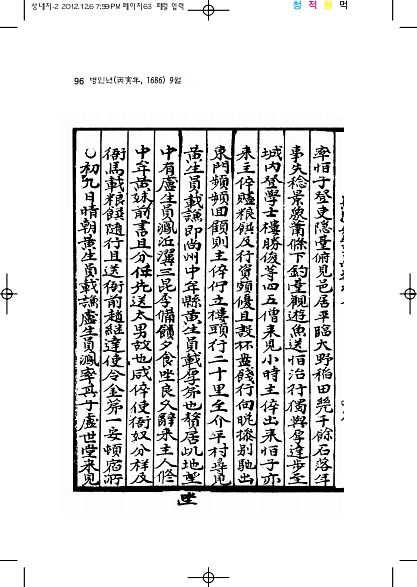 상내지-2 2012.12.6 7:59 PM 페이지63 제필 입력
청 적 황 먹
96 병인년(丙寅年, 1686) 9월
率怕子登吏隐臺俯見邑居平臨大野稻田幾千餘石落
事失稔景象蕭條下釣臺觀遊魚送怡治行獨與厚達步至
城內登學士樓勝復等四五僧來見小時主倅出來怕子亦
來主倅贐粮饌及行資頗優且設杯盘餞行向晩揆別馳出
東門頻頻回顧則主倅佇立樓頭行二十里至介平村尋見
黃生員載謙卽尚州中牟縣黃生員載厚弟也贅居此地墊
中有盧生員渢近漢三昆季備饋夕食坐良久辭來主人修
中牟黃妹前書且分
先送太男故也咸倅使衙奴分祥及
衙馬載粮饌隨行且送衙前趙継達使令金弟一安頓宿所
○初九日晴朝黃生員載謙盧生員渢率其子盧世堂來見
坐